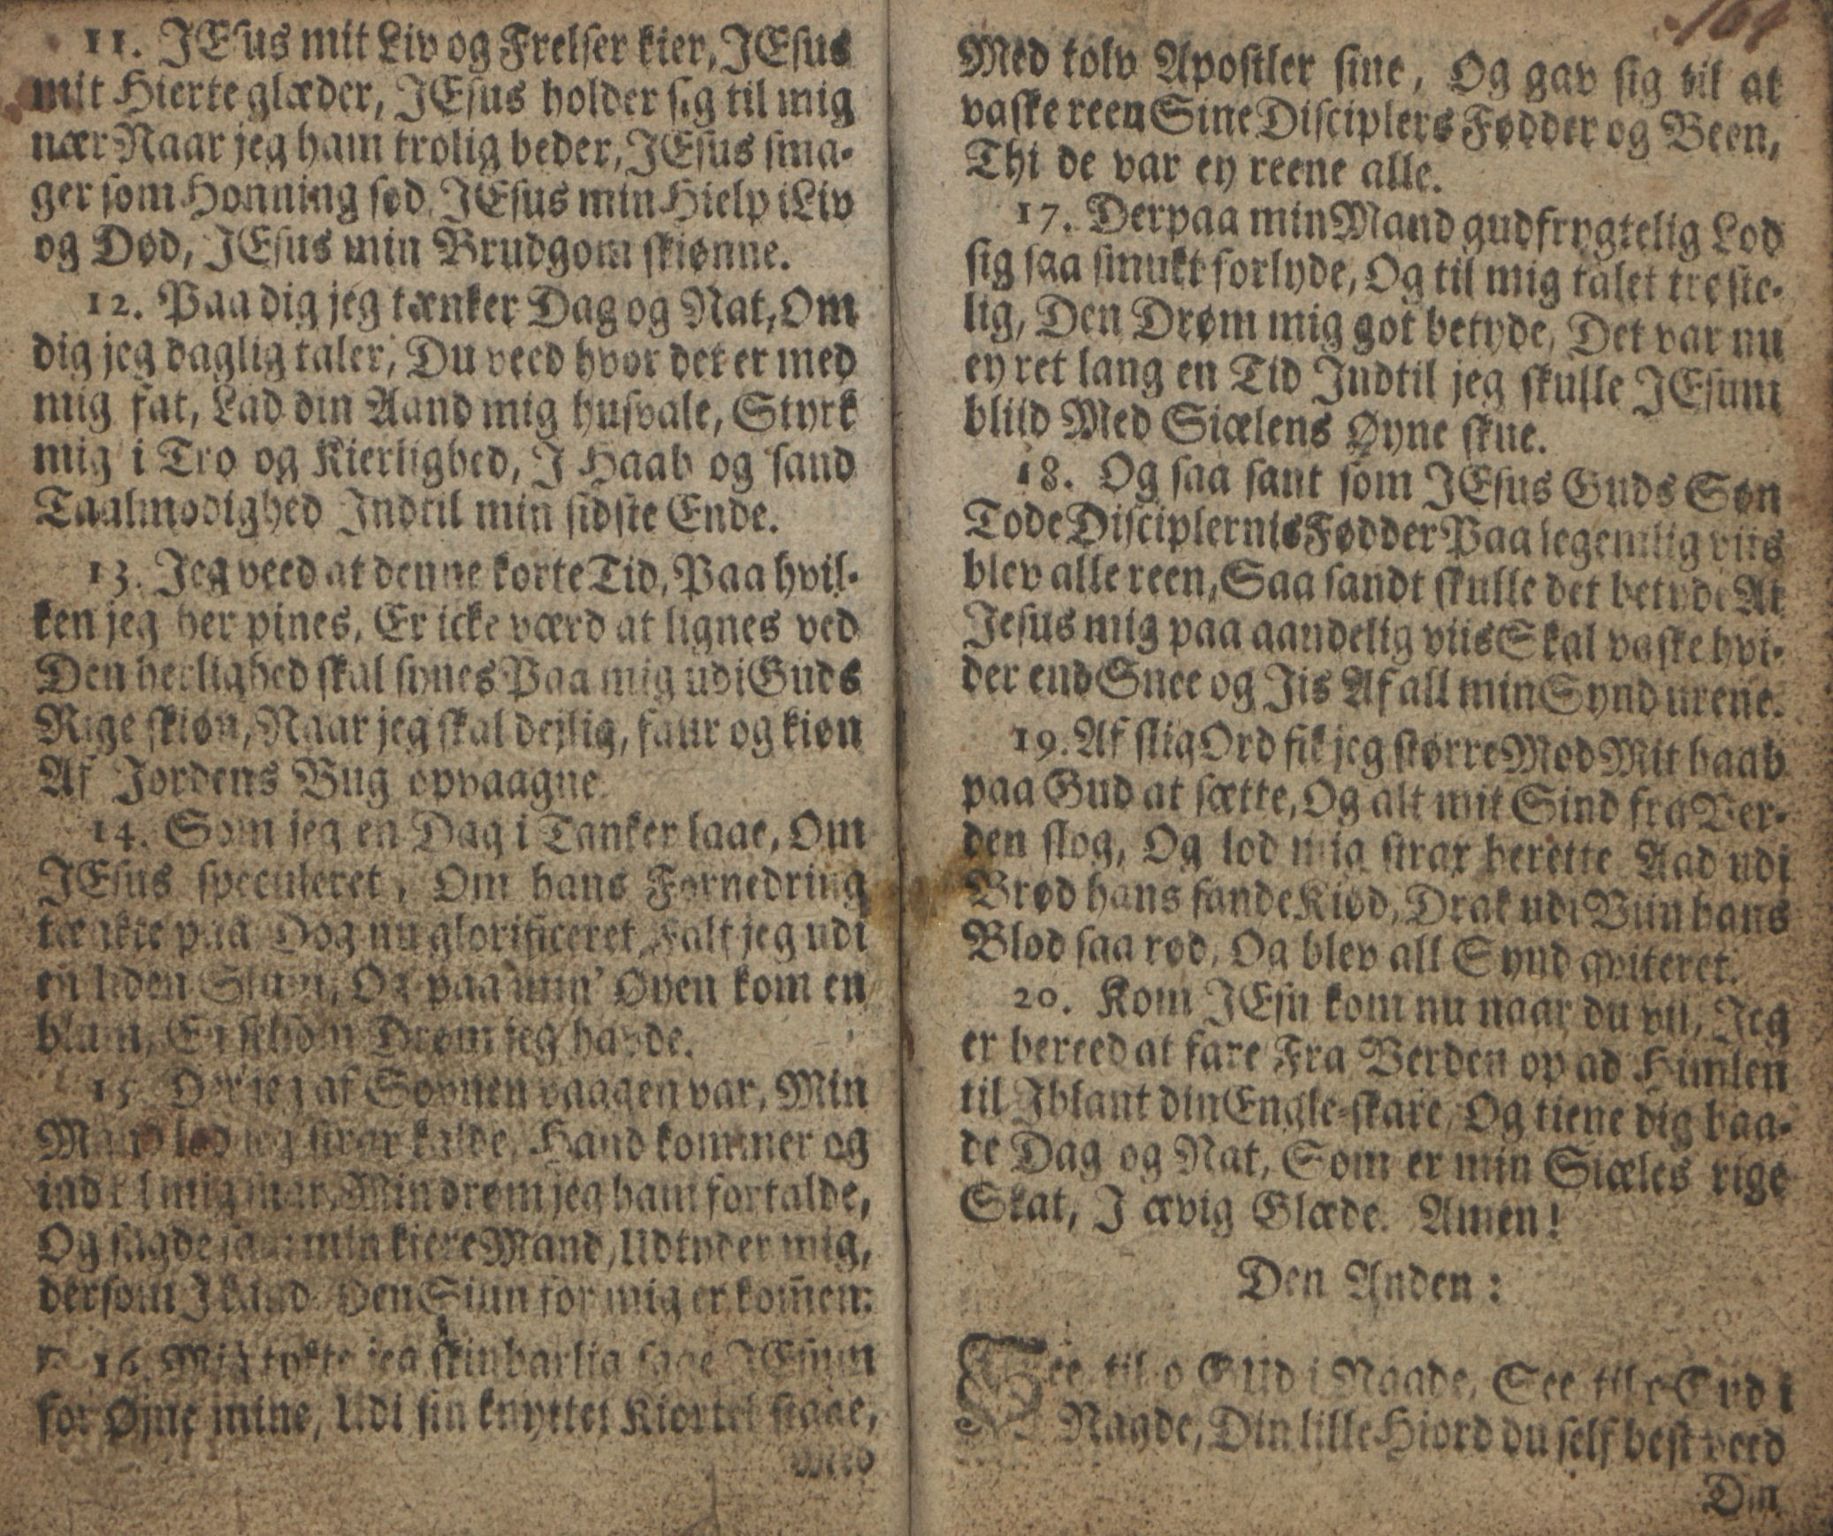 11. JEsus mit Liv og Frelser kier, JEsus
mit Hierte glæder, JEsus holder sig til mig
nær Naar jeg ham trolig beder, JEsus sma-
ger som Honning sød, JEsus min Hielp i Liv
og Død, JEsus min Brudgom skiønne.
12. Paa dig jeg tænker Dag og Nat, Om
dig jeg daglig taler, Du veed hvor det er med
mig fat, Lad din Aand mig husvale, Styrk
mig i Tro og Kierlighed, I Haab og sand
Taalmodighed Indtil min sidste Ende.
13. Jeg veed at denne korte Tid, Paa hvil-
ken jeg her pines, Er icke værd at lignes ved
Den herlighed skal synes Paa mig udi Guds
Rige skiøn, Naar jeg skal dejlig, faur og kiøn
Af Jordens Bug opvaagne
14. Som jeg en Dag i Tanker laae, Om
JEsus speculeret, Om hans Fornedring
tænkte paa Dog nu glorificeret, Falt jeg udi
en liden Slum, Og paa min Øyen kom en
blum, En selsom Drøm jeg havde.
15. Der jeg af Søvnen vaagen var, Min
Mand lod jeg strax kalde, Hand kommer og
ind til mig nar, Min drøm jeg ham fortalde,
Og sagde min kiere Mand, Udtyder mig,
dersom I kand Den Siun for mig er kom̃en:
16. Mig tykte jeg skinbarlig saae JEsum
for Øjne mine, Udi sin knyttet Kiortel staae,
Med
164
Med tolv Apostler sine, Og gav sig til at
vaske reen Sine Disciplers Fødder og Been,
Thi de var ey reene alle.
17. Derpaa min Mand gudfrygtelig Lod
sig saa smukt forlyde, Og til mig talet trøste-
lig, Den Drøm mig got betyde, Det var nu
ey ret lang en Tid Indtil jeg skulle JEsum
bliid Med Siælens Øyne skue.
18. Og saa sant som JEsus Guds Søn
Tode Disciplernis Fødder Paa legemlig viis
blev alle reen, Saa sandt skulle det betyde At
Jesus mig paa aandelig viis Skal vaske hvi-
der end Snee og Iis Af all min Synd urene.
19. Af slig Ord fik jeg større Mod Mit haab
paa Gud at sætte, Og alt mit Sind fra Ver-
den slog, Og lod mig strax berette Aad udi
Brød hans sande Kiød, Drak udi Viin hans
Blod saa rød, Og blev all Synd qviteret.
20. Kom JEsu kom nu naar du vil, Jeg
er bereed at fare Fra Verden op ad Himlen
til Iblant din Engle-skare, Og tiene dig baa-
de Dag og Nat, Som er min Siæles rige
Skat, I ævig Glæde. Amen!
Den Anden:
See til o GUd i Naade, See til o Gud i
Naade, Din lille Hiord du self best veed
Din